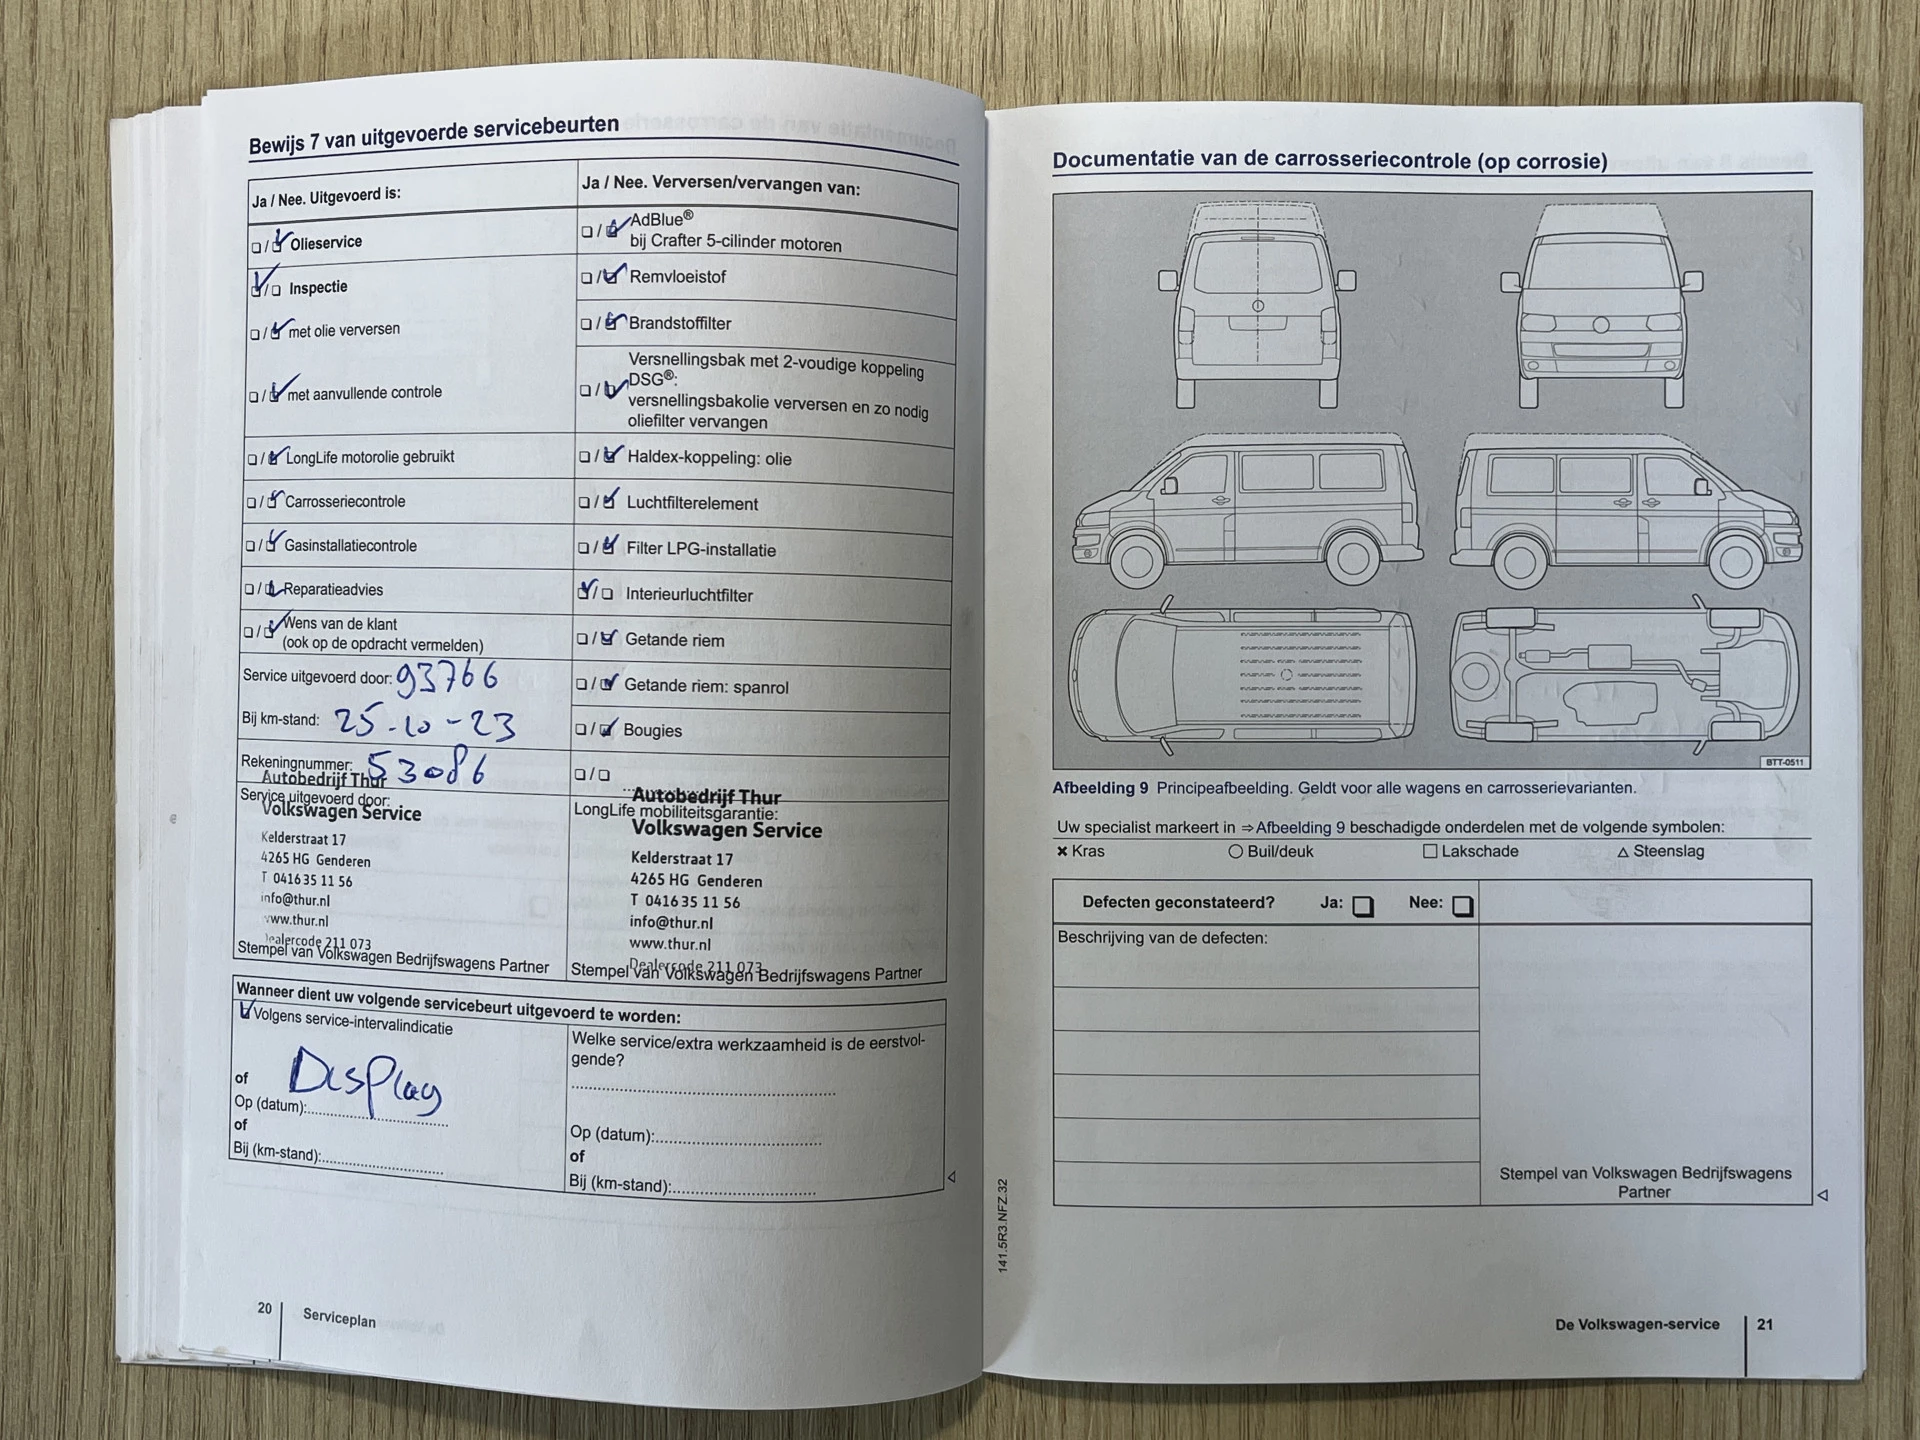 Bewijs 7 van uitgevoerde servicebeurten
Ja / Nee. Uitgevoerd is:
Olieservice
Inspectie
met olie verversen
met aanvullende controle
LongLife motorolie gebruikt
Carrosseriecontrole
Gasinstallatiecontrole
Reparatieadvies
Wens van de klant
(ook op de opdracht vermelden)
Service uitgevoerd door: 93766
Bij km-stand: 25-10-23
Rekeningnummer: 53086
Autobedrijf Thur
Service uitgevoerd door:
Volkswagen Service
Kelderstraat 17
4265 HG Genderen
T 0416 35 11 56
info@thur.nl
www.thur.nl
Dealercode 211 073
Stempel van Volkswagen Bedrijfswagens Partner
Ja / Nee. Verversen/vervangen van:
AdBlue®
bij Crafter 5-cilinder motoren
Remvloeistof
Brandstoffilter
Versnellingsbak met 2-voudige koppeling
DSG®:
versnellingsbakolie verversen en zo nodig
oliefilter vervangen
Haldex-koppeling: olie
Luchtfilterelement
Filter LPG-installatie
Interieurluchtfilter
Getande riem
Getande riem: spanrol
Bougies
Autobedrijf Thur
LongLife mobiliteitsgarantie:
Volkswagen Service
Kelderstraat 17
4265 HG Genderen
T 0416 35 11 56
info@thur.nl
www.thur.nl
Dealercode 211 073
Stempel van Volkswagen Bedrijfswagens Partner
Wanneer dient uw volgende servicebeurt uitgevoerd te worden:
Volgens service-intervalindicatie
Display
of
Op (datum):
of
Bij (km-stand):
Welke service/extra werkzaamheid is de eerstvol-
gende?
Op (datum):
of
Bij (km-stand):
20 Serviceplan
141.5R3.NFZ.32
Documentatie van de carrosseriecontrole (op corrosie)
BTT-0511
Afbeelding 9 Principeafbeelding. Geldt voor alle wagens en carrosserievarianten.
Uw specialist markeert in ⇒ Afbeelding 9 beschadigde onderdelen met de volgende symbolen:
× Kras ○ Buil/deuk □ Lakschade △ Steenslag
Defecten geconstateerd? Ja: Nee:
Beschrijving van de defecten:
Stempel van Volkswagen Bedrijfswagens
Partner
De Volkswagen-service 21